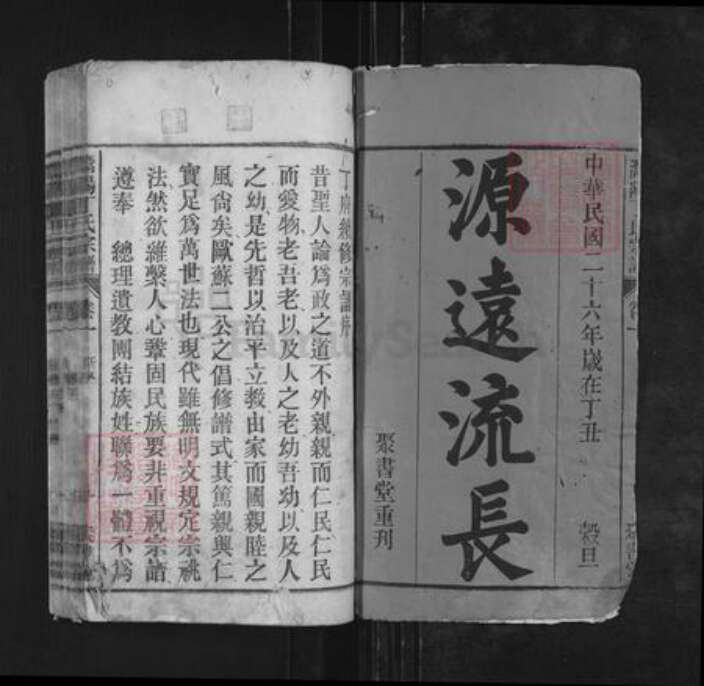 中華民國二十六年歲在丁丑 穀旦
源遠流長
聚書堂重刊
丁府續修宗譜序
昔聖人論爲政之道不外親親而仁民仁民
而愛物老吾老以及人之老幼吾幼以及人
之幼是先哲以治平立教由家而國親睦之
風尙矣歐蘇二公之倡修譜式其篤親興仁
實足爲萬世法也現代雖無明文規定宗祧
法然欲維繫人心鞏固民族要非重視宗譜
遵奉 總理遺教團結族姓聯爲一體不爲
丁氏宗譜 卷一